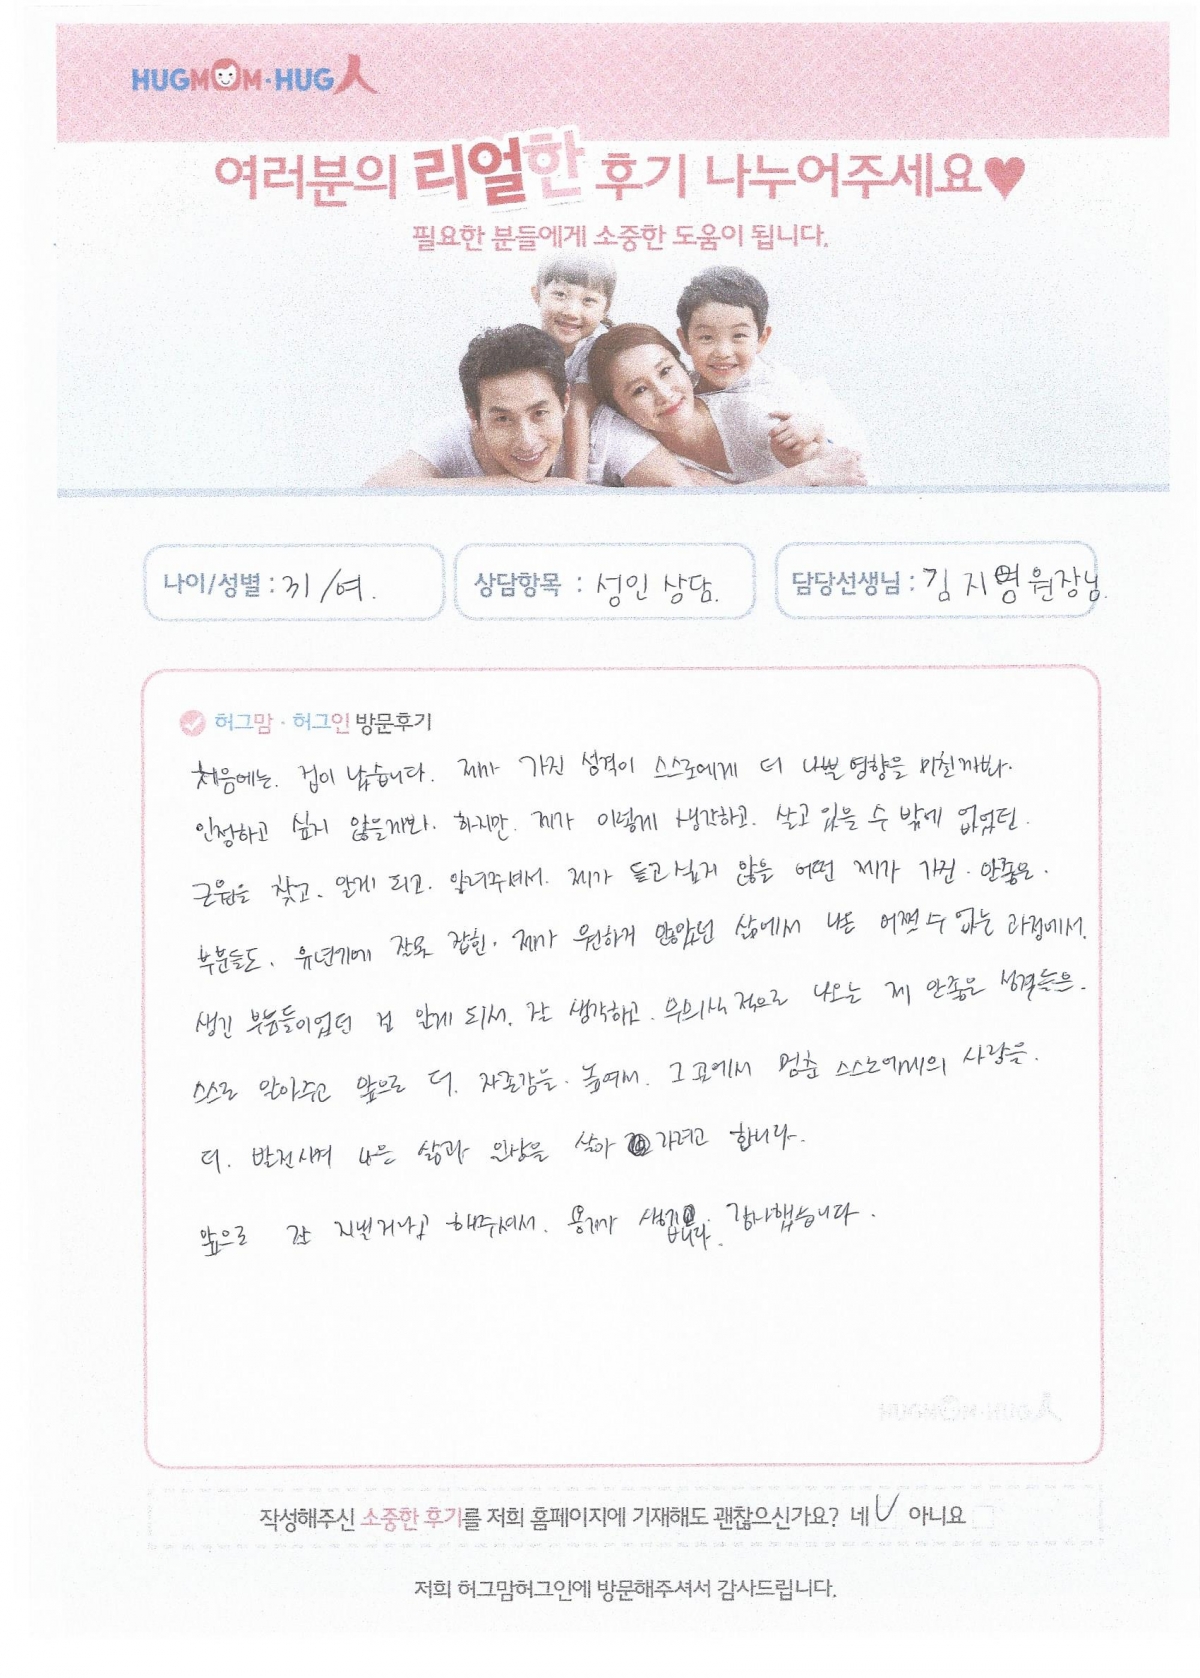 HUGMOM·HUG人
여러분의 리얼한 후기 나누어주세요♥
필요한 분들에게 소중한 도움이 됩니다.
나이/성별 : 31 /여.
상담항목 : 성인 상담.
담당선생님 : 김지명 원장님.
허그맘 · 허그인 방문후기
처음에는. 겁이 났습니다. 제가 가진 성격이 스스로에게 더 나쁜 영향을 미친까봐.
인정하고 싶지 않을까봐. 하지만. 제가 이렇게 생각하고. 살고 있을 수 밖에 없었던.
근원을 찾고. 알게 되고. 알려주셔서. 제가 듣고싶지 않을 어떤 제가 가진. 안좋은.
부분들도. 유년기에 잘못 잡힌. 제가 원하지 않았던 삶에서 나는 어쩔 수 없는 과정에서.
생긴 부분들이었던 걸 알게 되서. 잘 생각하고. 무의식적으로 나오는 제 안좋은 성격들은.
스스로 알아주고 앞으로 더. 자존감을. 높여서. 그 곳에서 멈춘 스스로에게의 사랑을.
더. 발전시켜 나은 삶과 인생을 살아 가려고 합니다.
앞으로 잘 지낼거라고 해주셔서. 용기가 생깁니다. 감사했습니다.
HUGMOM·HUG人
작성해주신 소중한 후기를 저희 홈페이지에 기재해도 괜찮으신가요? 네 아니요
저희 허그맘허그인에 방문해주셔서 감사드립니다.